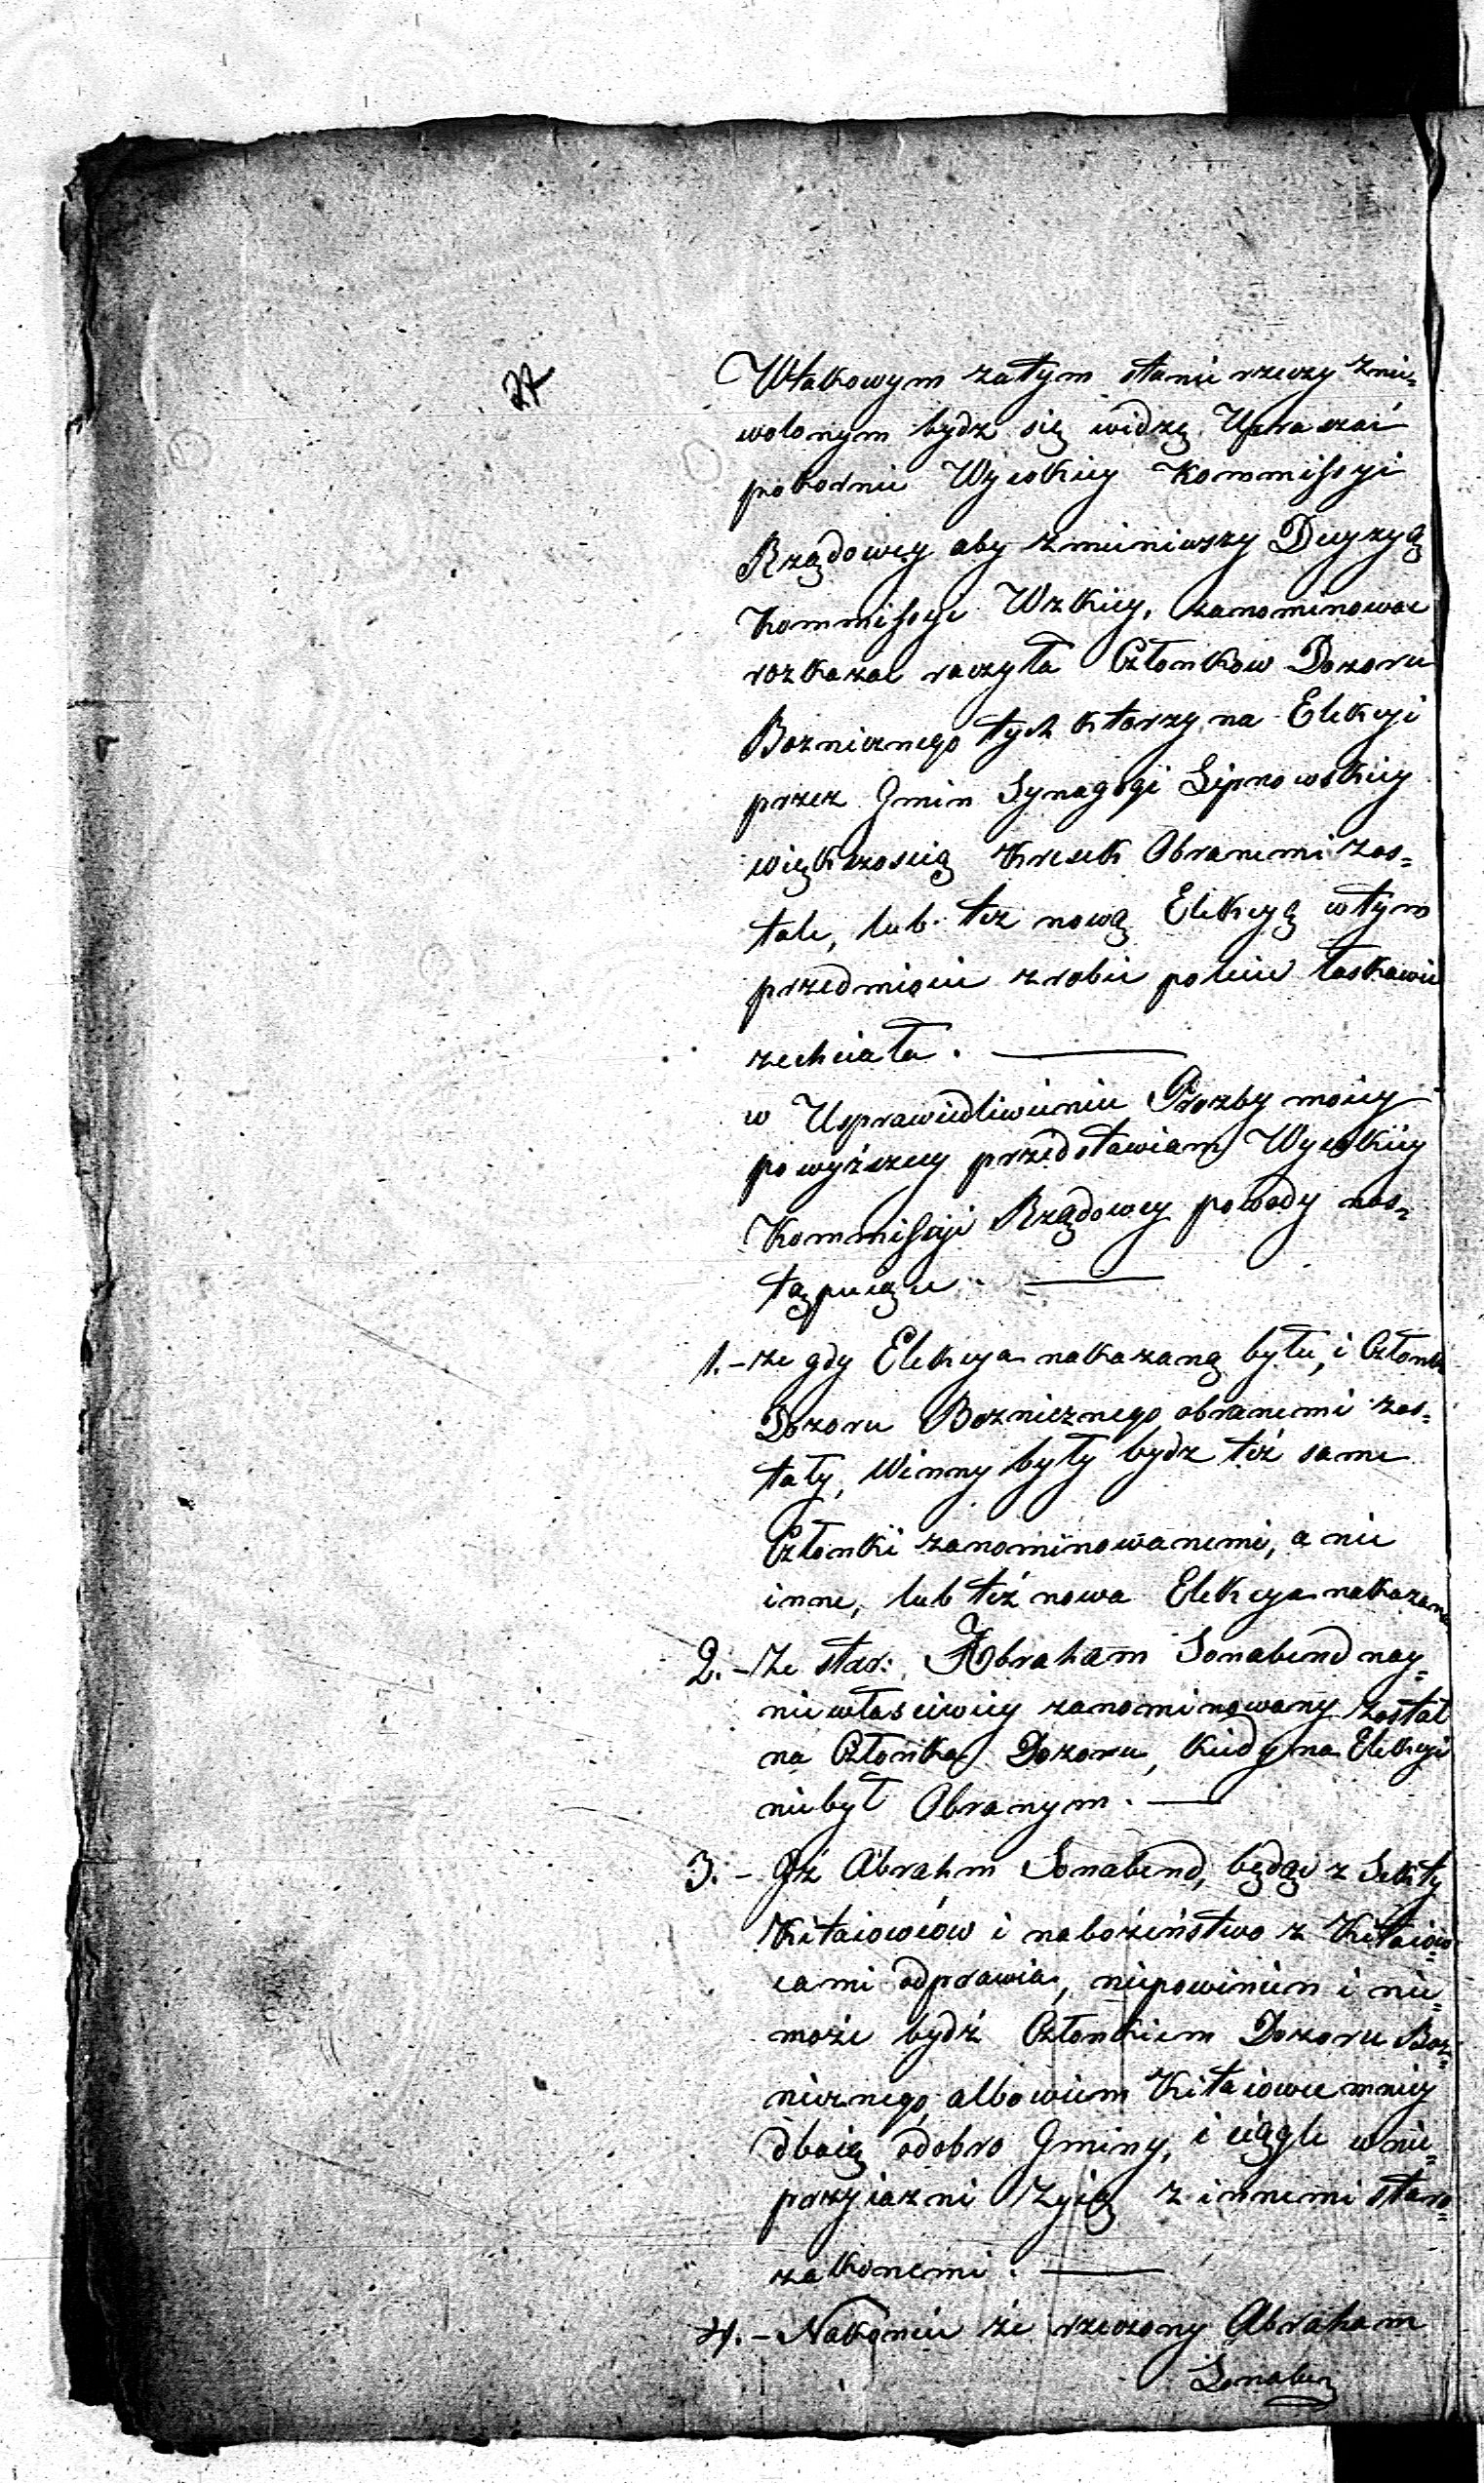 27
Wtakowym zatym stanie rzeczy znie=
wolonym bydz się widzę Upraszać
pokornie Wysokiey Kommissyi
Rządowey aby zmieniwszy Decyzyą
Kommissyi Wzkiey, zanominować
rozkazać raczyła Członkow Dozoru
Boznicznego tych ktorzy na Elekcyi
przez Gmin Synagogi Lipnowskiey
większoscią kresek Obranemi zos=
tale, lub tez nową Elekcyą wtym
przedmiocie zrobić polecić łaskawie
zechciała. —
w Usprawiedliwieniu Prozby moiey
powyższey przedstawiam Wysokiey
Kommissyi Rządowey powody nas=
tępuiące —
1. – że gdy Elekcya nakazaną była, i Członki
Dozoru Boznicznego obranemi zos=
tały, Winny były bydz też same
Członki zanominowanemi, a nie
inne, lub też nowa Elekcya nakazana
2. – że star: Abraham Sonabend nay=
niewłasciwiey zanominowany został
na Członka Dozoru, kiedy na Elekcyi
niebył Obranym. —
3. – Iż Abrahm Sonabend, będąc z Sekty
Kitaiowców i nabożeństwo z Kitaiow=
cami odprawia, niepowinien i nie=
może bydź Członkiem Dozoru Boz=
nicznego, albowiem Kitaiowce mniey
dbaią odobro Gminy, i ciągle w nie=
przyiazni żyią z innemi staro=
zakonemi. —
4. – Nakoniec że rzeczony Abraham
Sonaben